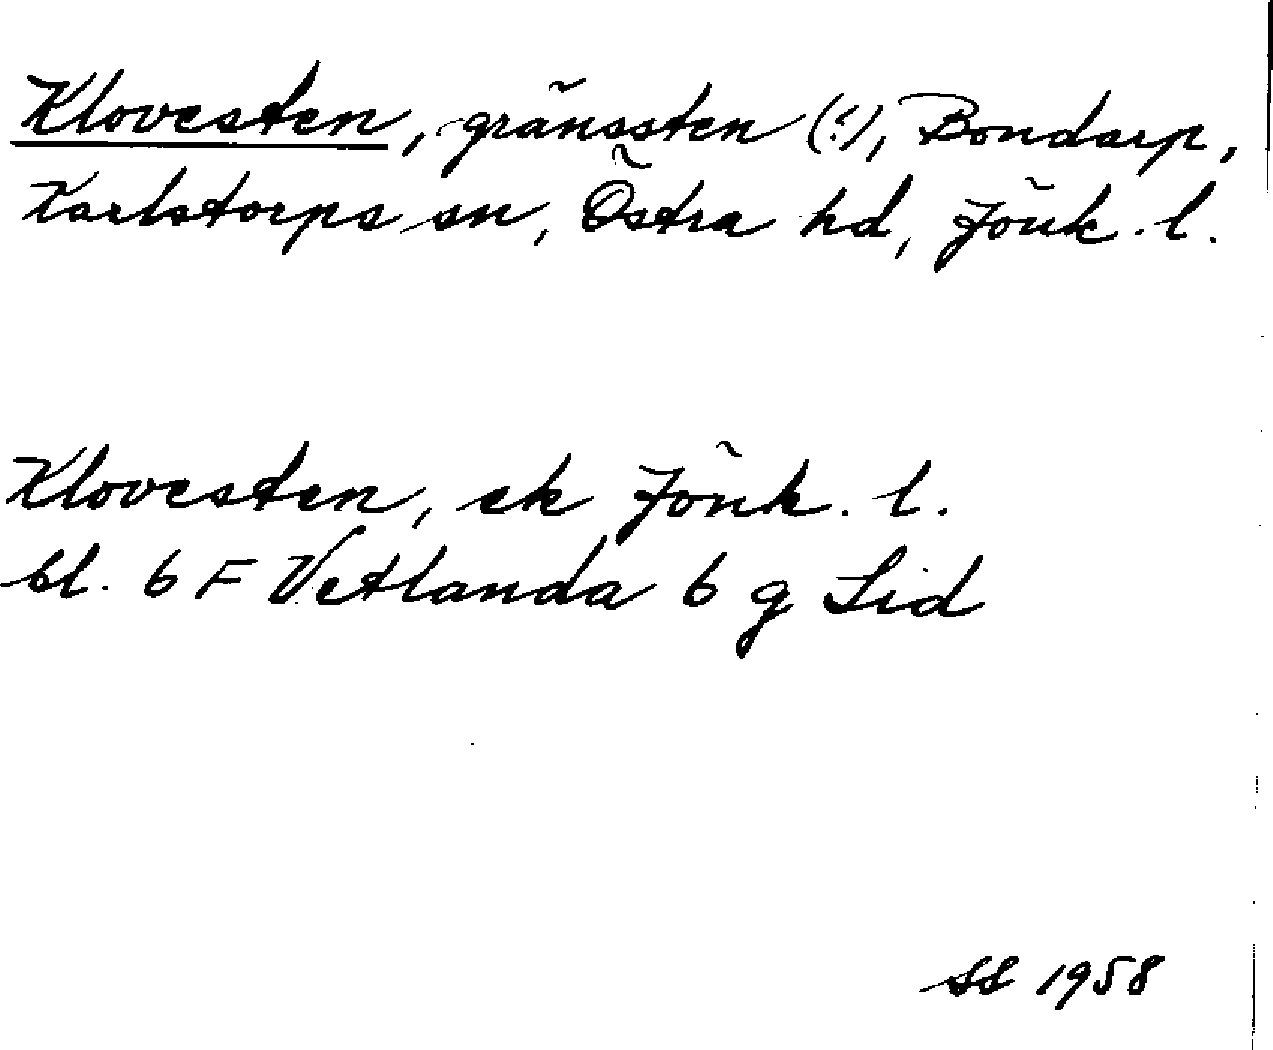 Klovesten, gränssten (?), Bondarp,
Karlstorps sn, Östra hd, Jönk. l.
Klovesten, ek Jönk. l.
bl. 6 F Vetlanda 6 g Lid
SS 1958